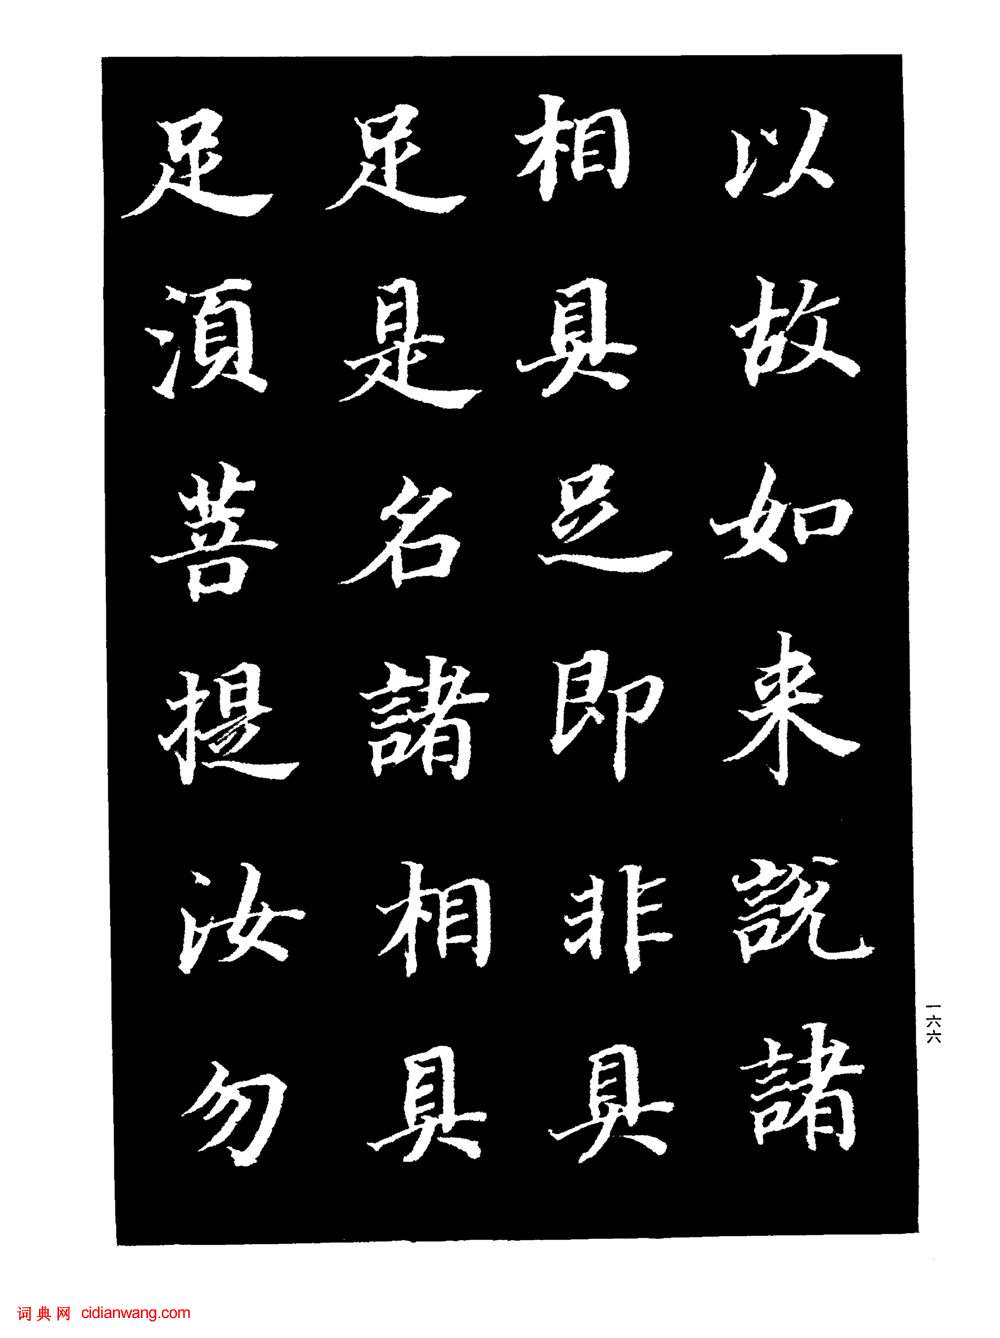 以故如来説諸
相具足即非具
足是名諸相具
足湏菩提汝勿
一六六
词典网 cidianwang.com